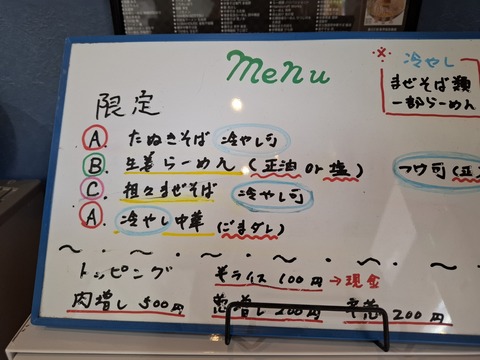 Menu
※ 冷やし
まぜそば類
一部らーめん
限定
A. たぬきそば 冷やし可
B. 生姜らーめん (正油 or 塩)
つけ可 (正
C. 担々まぜそば 冷やし可
A. 冷やし中華 (ごまダレ)
トッピング 半ライス 100円 →現金
肉増し 500円 増し 200円 200円